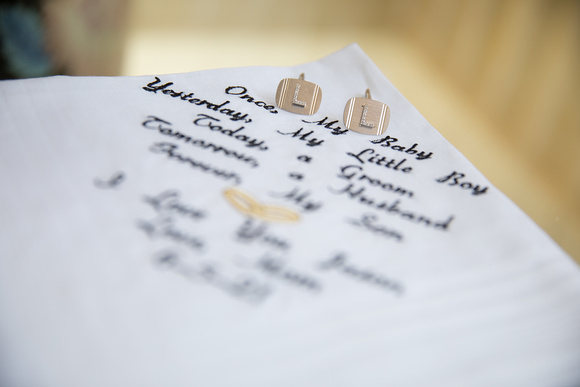 L L
Once, My Baby
Yesterday, My Little Boy
Today, a Groom
Tomorrow, a Husband
Forever, My Son
I Love You
Love Mum